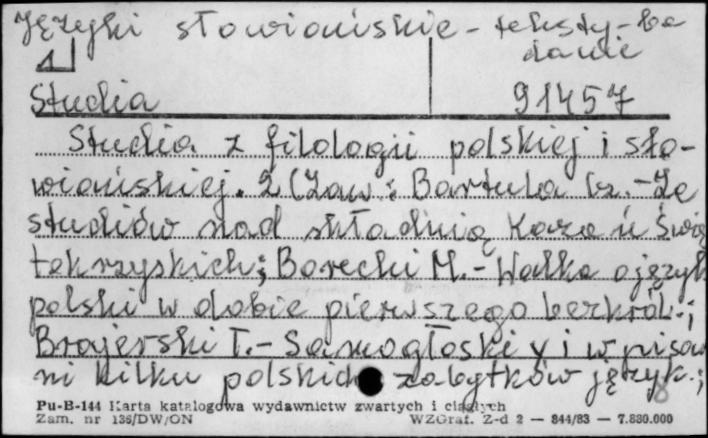 Języki słowiańskie - teksty - ba
danie
Studia 91457
Studia z filologii polskiej i sło-
wiańskiej. 2 (Zaw: Bartula Cz. - Ze
studiów nad składnią Kazań Świę
tokrzyskich; Borecki M. - Walka o język
polski w dobie pierwszego bezkról.;
Brajerski T. - Samogłoski y i w pisow
ni kilku polskich zabytków język.;
Pu-B-144 Karta katalogowa wydawnictw zwartych i ciągłych
Zam. nr 136/DW/ON WZGraf. Z-d 2 — 844/83 — 7.830.000